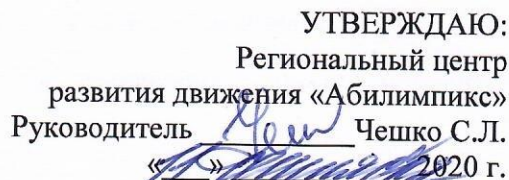 УТВЕРЖДАЮ:
Региональный центр
развития движения «Абилимпикс»
Руководитель Чешко С.Л.
« » 2020 г.